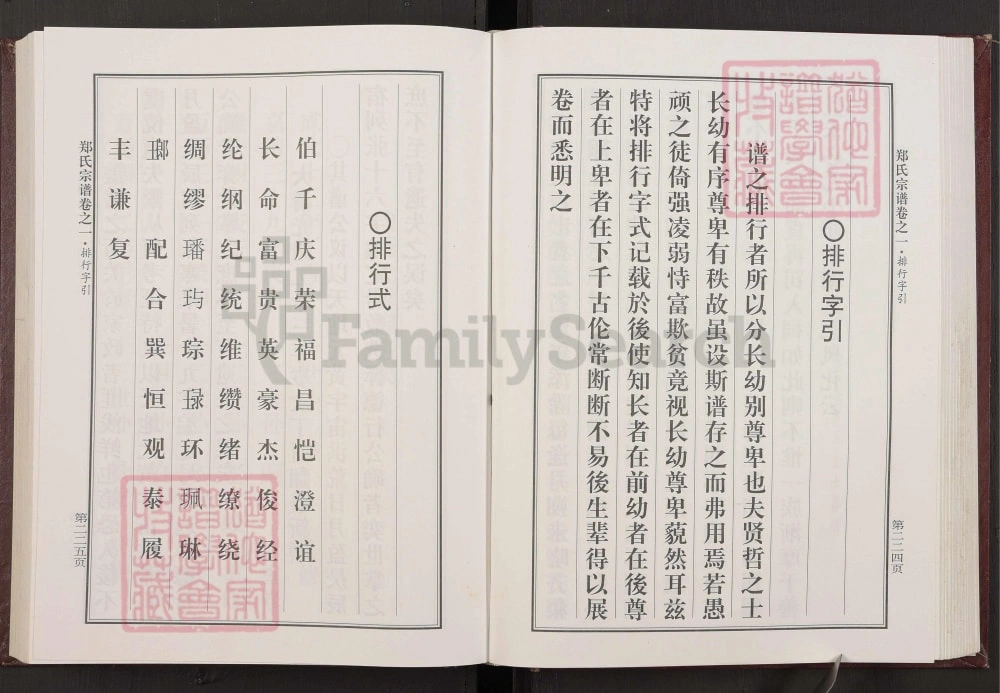 郑氏宗谱卷之一·排行字引
第二二四页
〇排行字引
谱之排行者所以分长幼别尊卑也夫贤哲之士
长幼有序尊卑有秩故虽设斯谱存之而弗用焉若愚
顽之徒倚强凌弱恃富欺贫竟视长幼尊卑藐然耳兹
特将排行字式记载於後使知长者在前幼者在後尊
者在上卑者在下千古伦常断断不易後生辈得以展
卷而悉明之
〇排行式
伯千庆荣福昌恺澄谊
长命富贵英豪杰俊经
纶纲纪统维缵绪缭绕
绸缪璠玙琮琭环珮琳
琊配合巽恒观泰履
丰谦复
郑氏宗谱卷之一·排行字引
第二二五页
FamilySearch